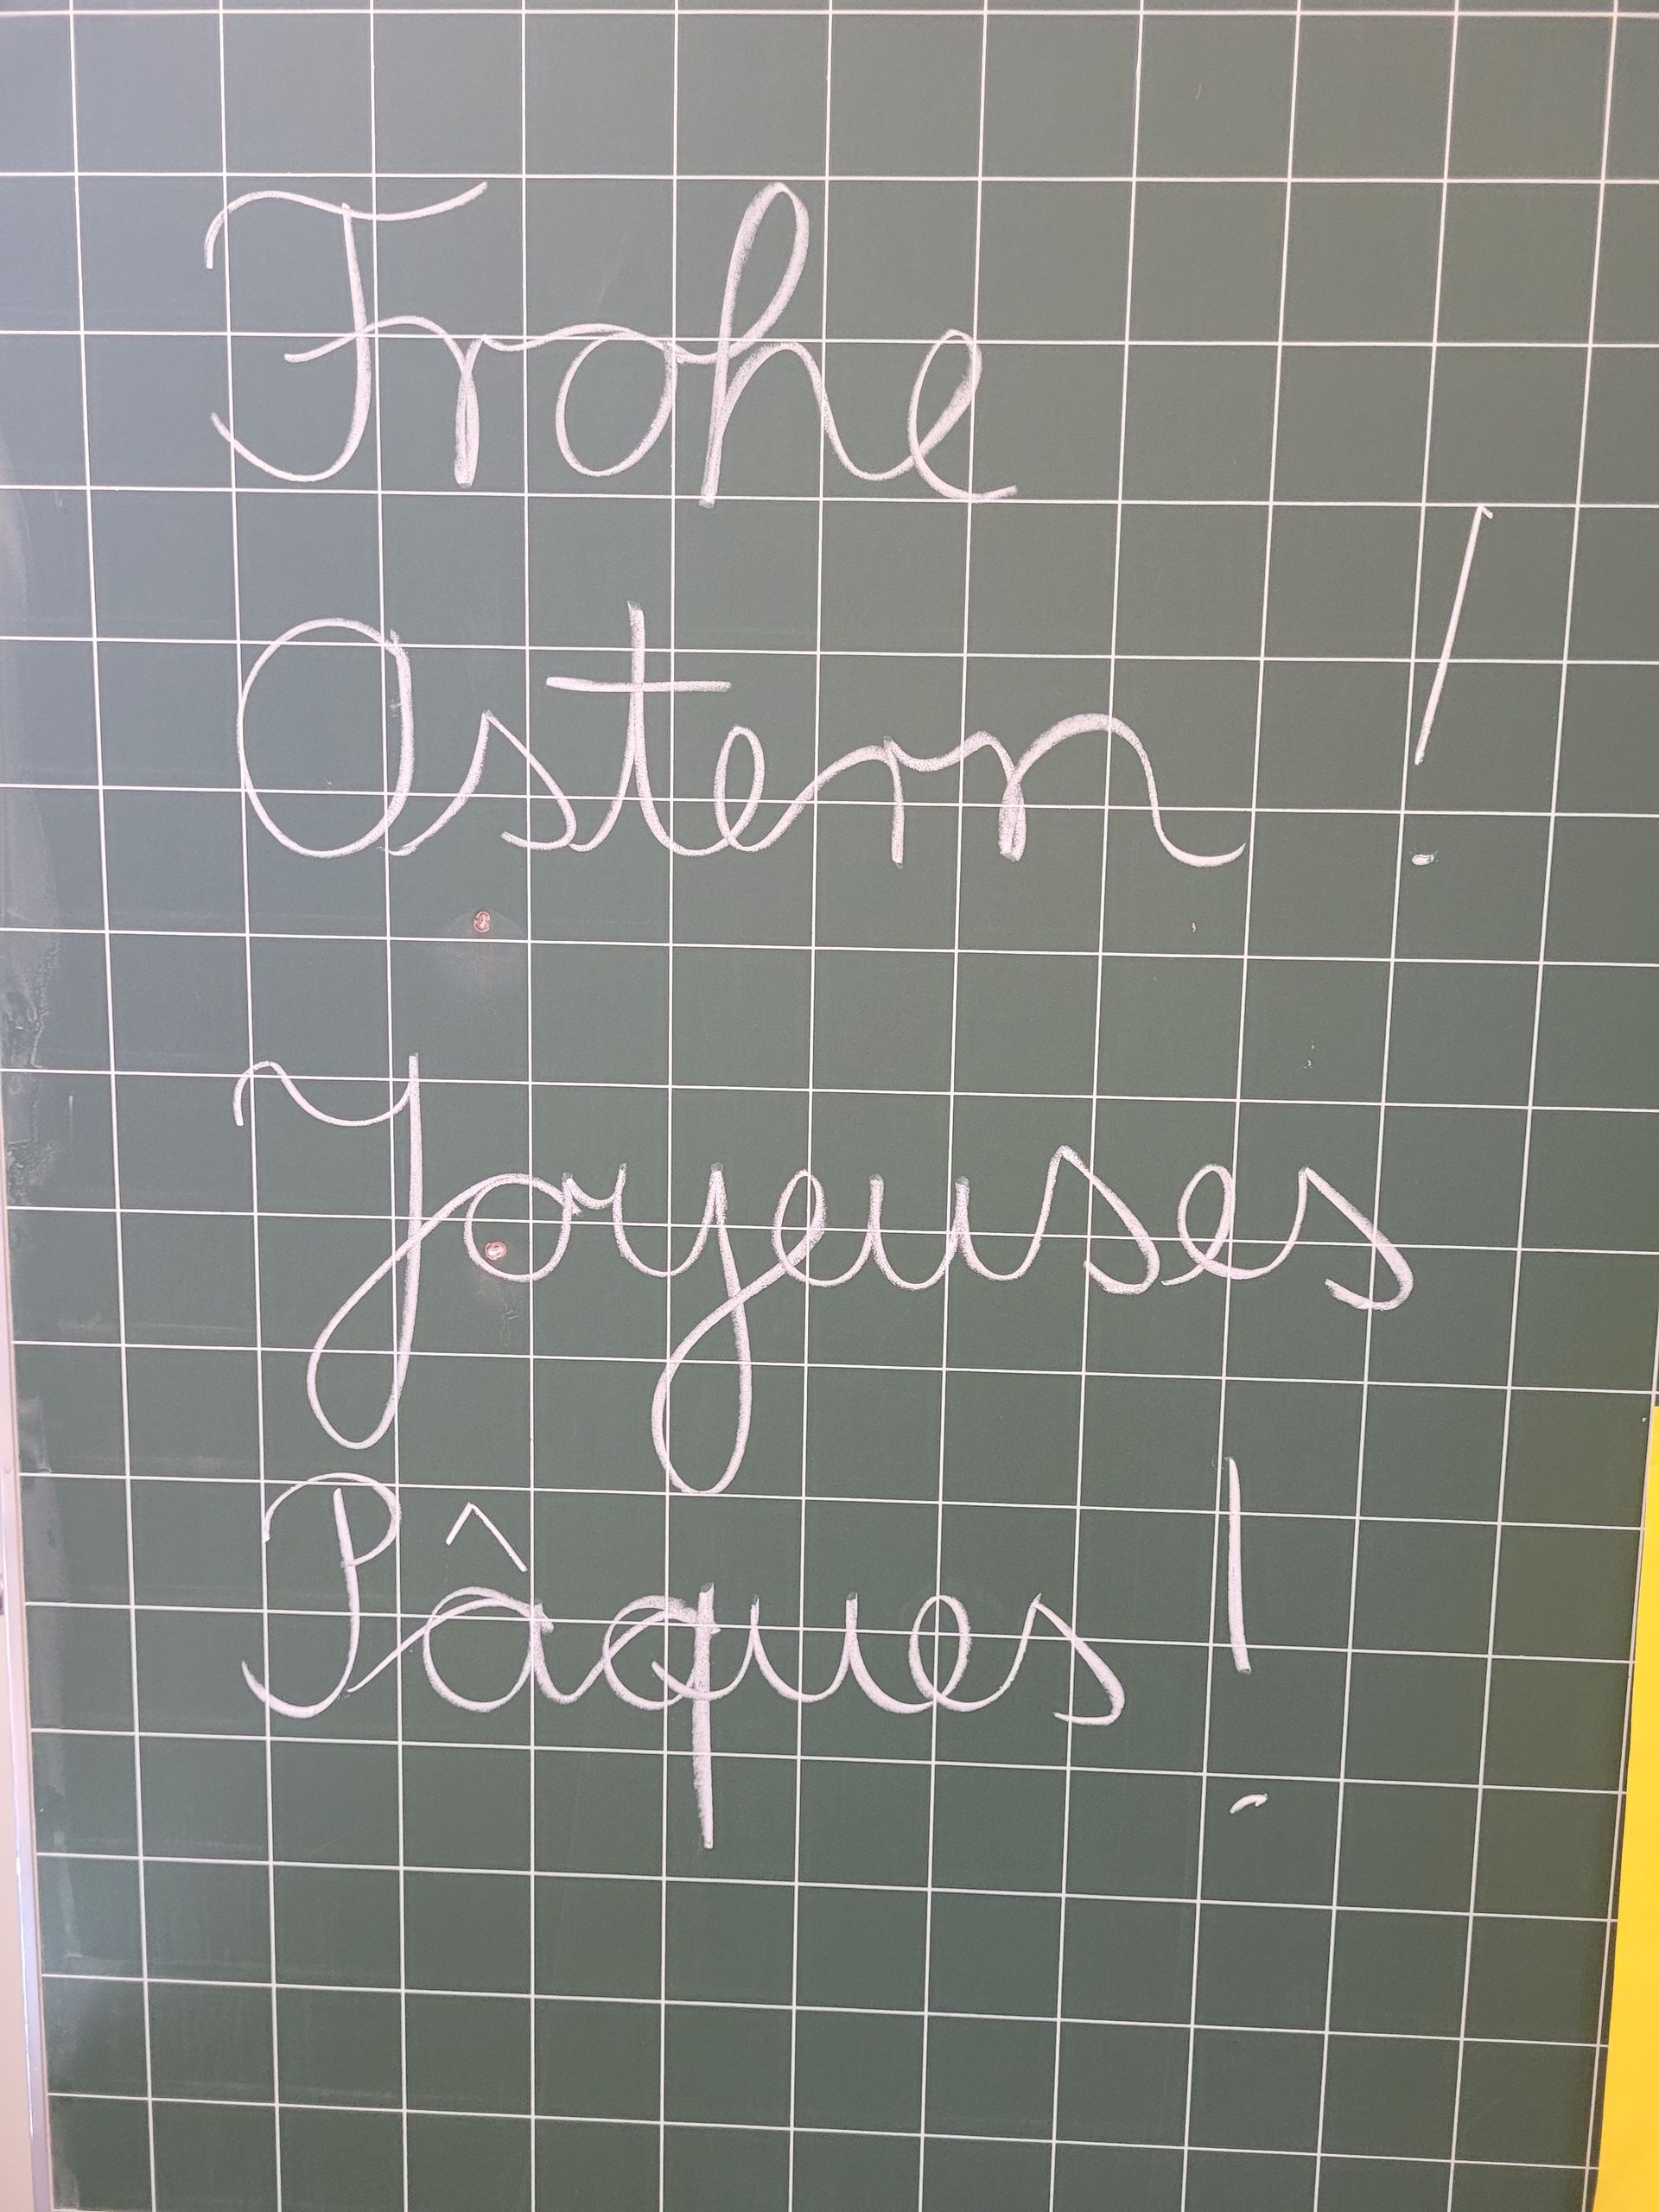 Frohe
Ostern !
Joyeuses
Pâques !